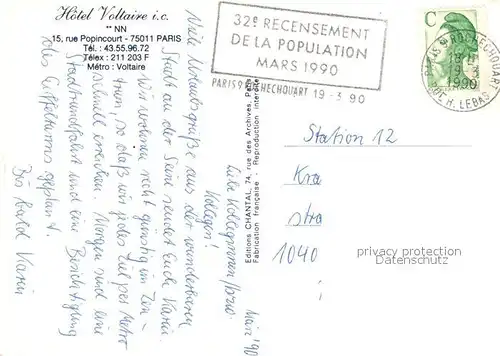 Hôtel Voltaire i.c.
** NN
15, rue Popincourt - 75011 PARIS
Tél. : 43.55.96.72
Télex : 211 203 F
Métro : Voltaire
32e RECENSEMENT
DE LA POPULATION
MARS 1990
PARIS 9 ROCHECHOUART 19 -3 90
C
18 H
19 -3
1990
RUE H. LEBAS
Editions CHANTAL, 74, rue des Archives, Paris
Fabrication française - Reproduction interdite
März '90
Liebe Kolleginnen/
Kollegen!
Viele Urlaubsgrüße aus der wunderbaren
Stadt an der Seine sendet Euch Karin.
Wir wohnen recht günstig im Zen-
trum, so daß wir jedes Ziel per Metro
schnell erreichen. Morgen sind eine
Stadtrundfahrt und eine Besichtigung
des Eiffelturms geplant.
Bis bald Karin
Station 12
Kra
stra
1040
privacy protection
view company